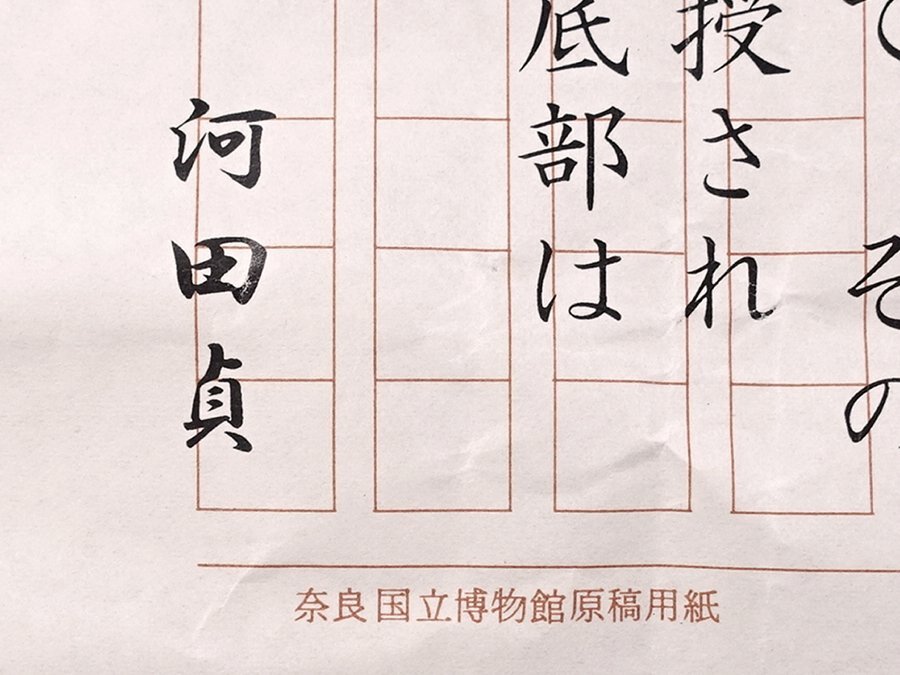 て、その
授され
底部は
河田貞
奈良国立博物館原稿用紙